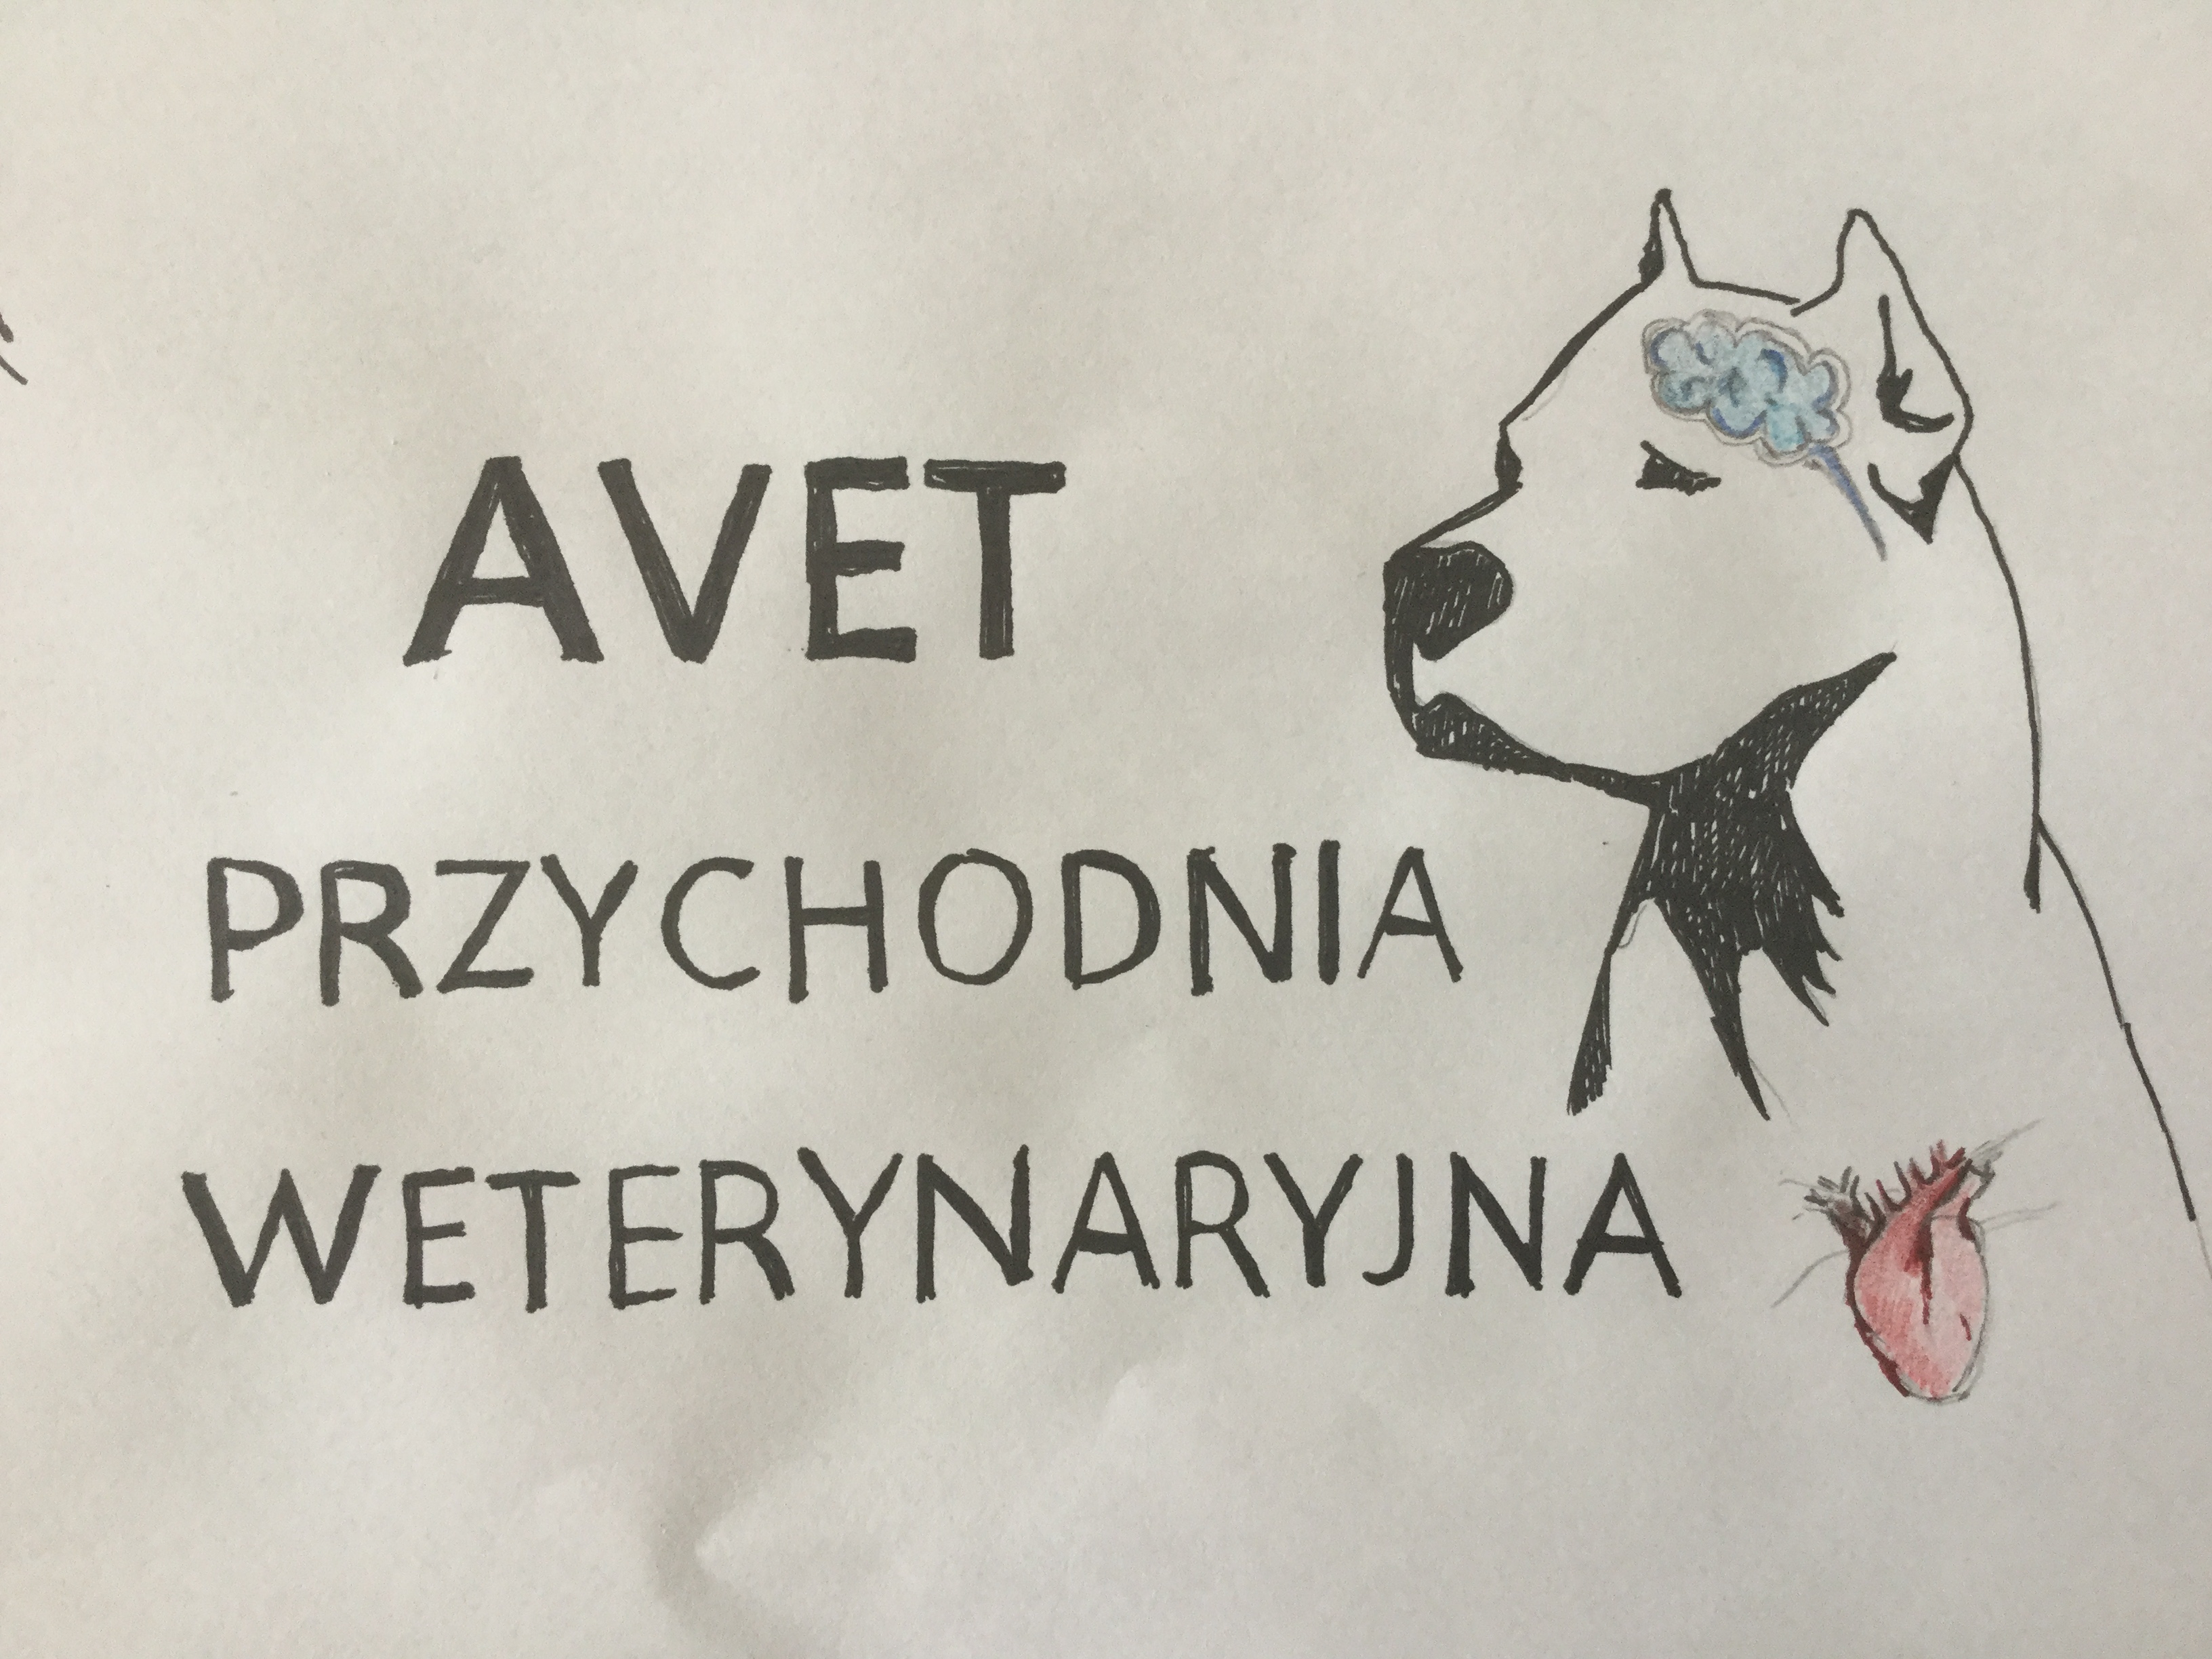 AVET
PRZYCHODNIA
WETERYNARYJNA